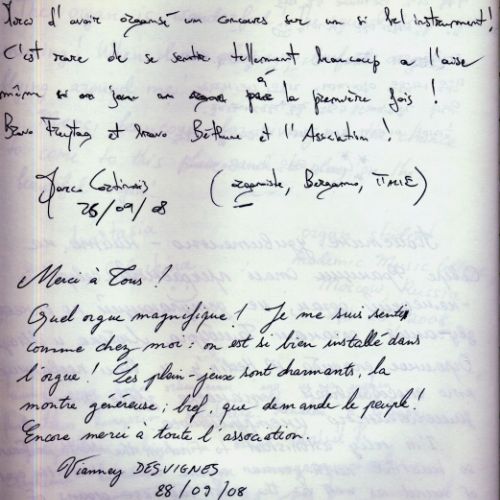 Merci d'avoir organisé un concours sur un si bel instrument!
C'est rare de se sentir tellement beaucoup a l'aise
même si on joue un à la première fois!
Bravo Freytag et bravo Béthune et l'Association!
Marco (organiste, Bergamo, ITALIE)
26/09/08
Merci à Tous!
Quel orgue magnifique! Je me suis senti
comme chez moi: on est si bien installé dans
l'orgue! Les plein-jeux sont charmants, la
montre généreuse; bref, que demande le peuple!
Encore merci à toute l'association.
Vianney DESVIGNES
28/09/08